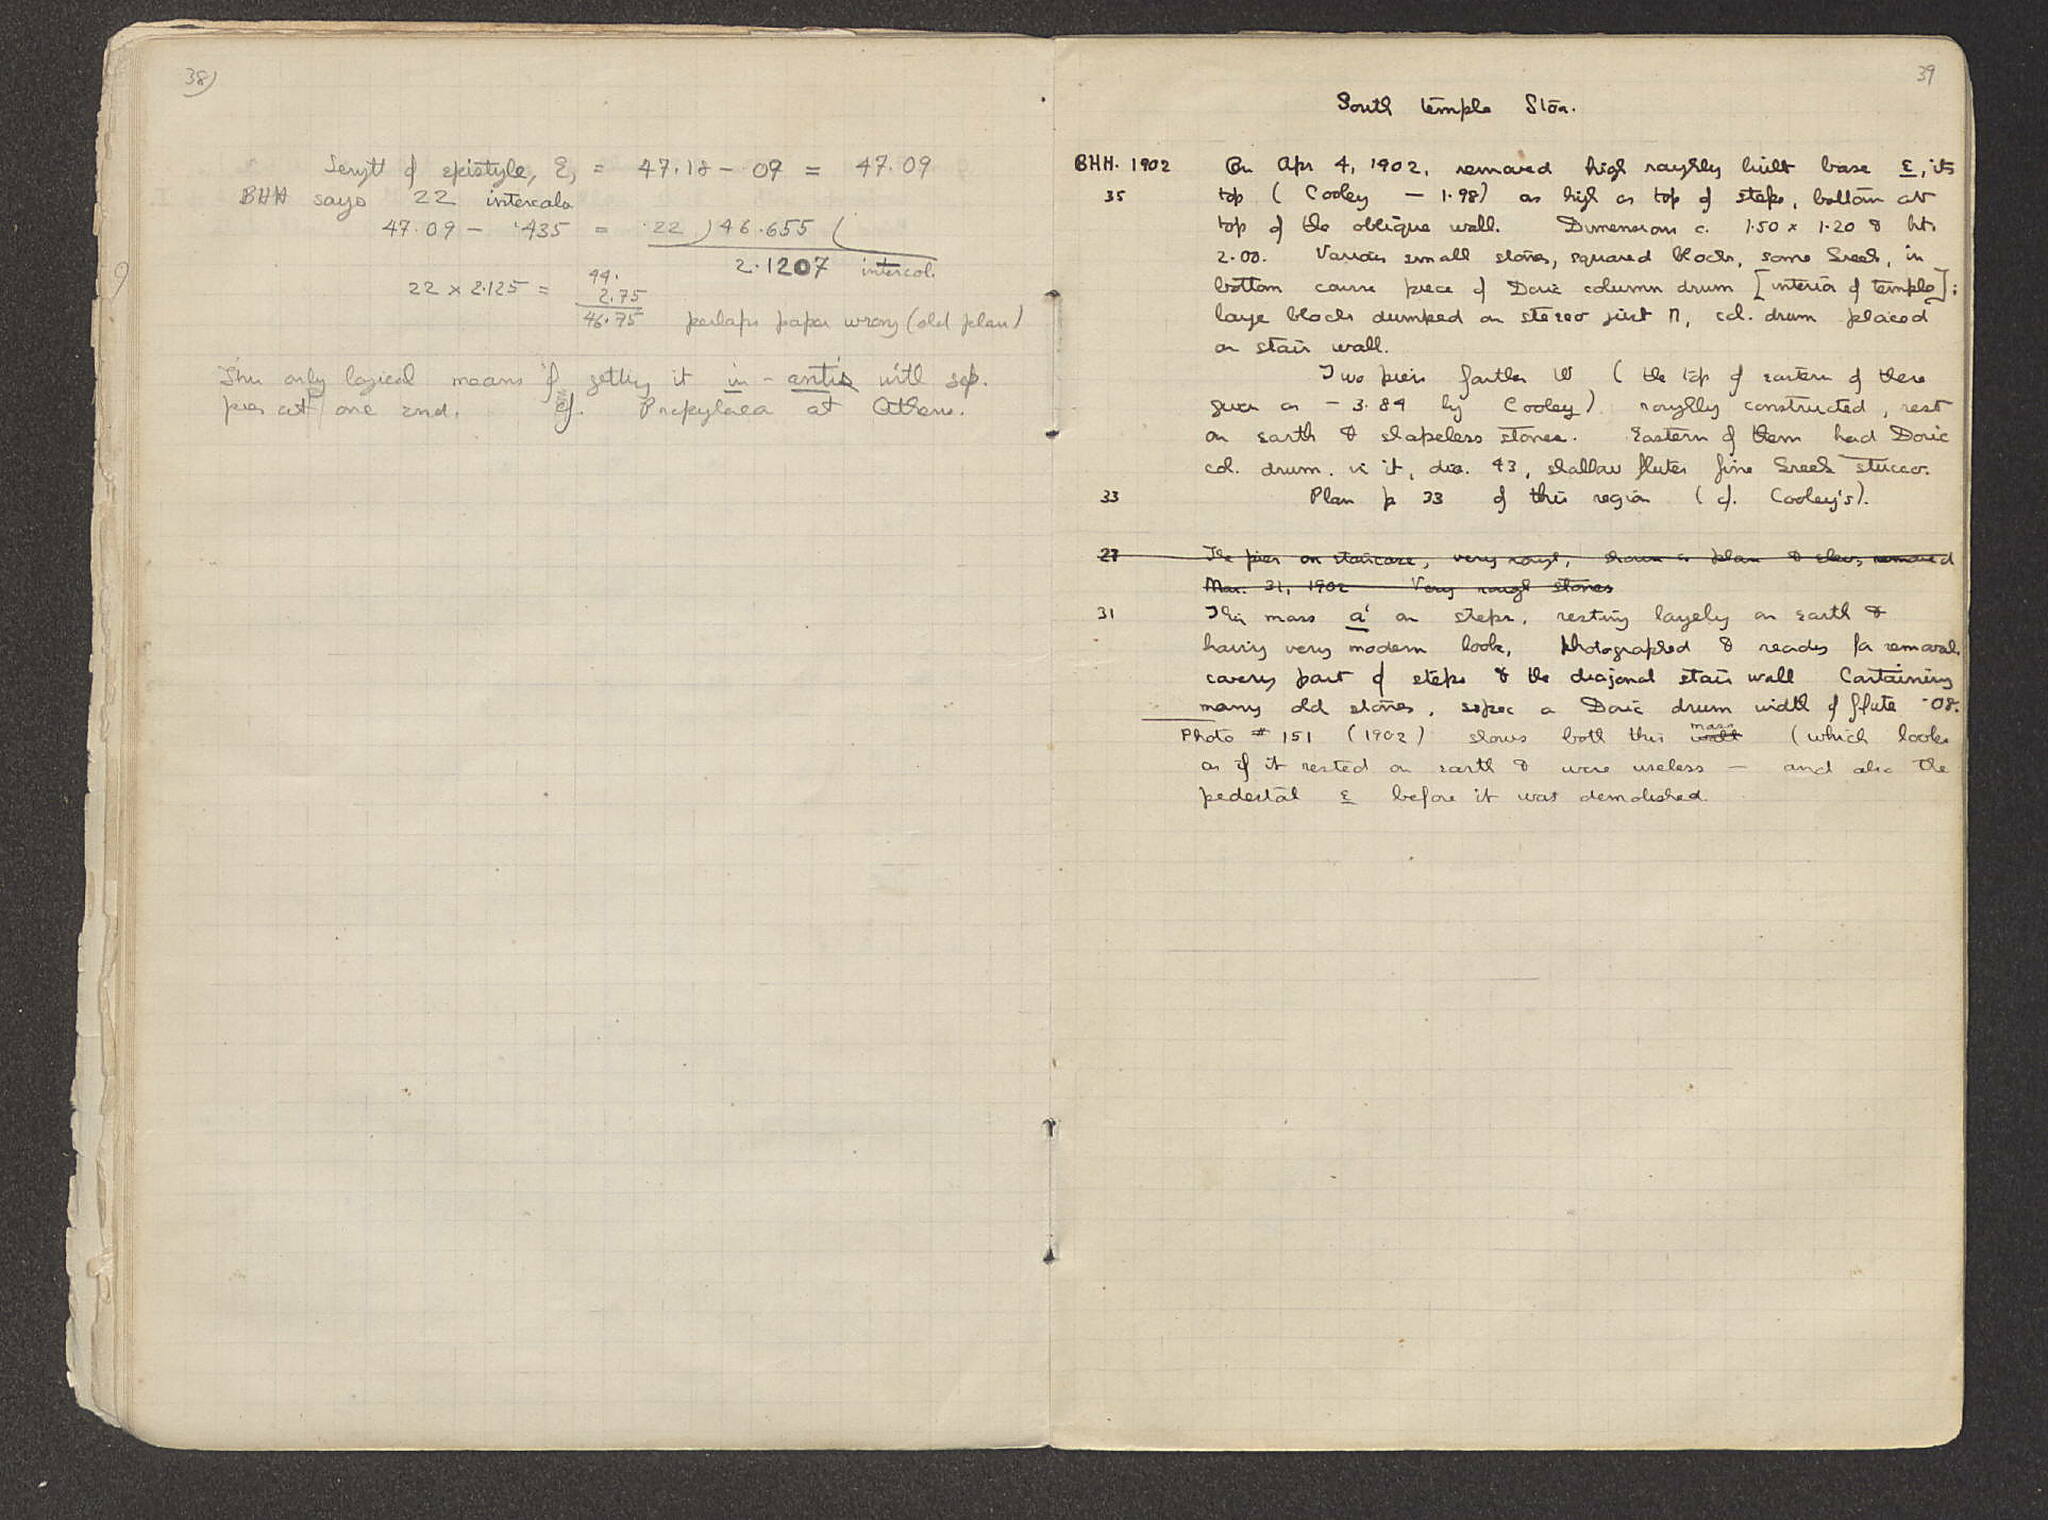 38)
Length of epistyle, E, = 47.18 - 09 = 47.09
BHH says 22 intercols
47.09 - .435 = 22 ) 46.655 (
2.1207 intercol.
22 x 2.125 = 44.
2.75
46.75 perhaps paper wrong (old plan)
Thus only logical means of getting it in-antis with sep.
pier at one end. cf. Propylaea at Athens.
39
South temple Stoa.
BHH. 1902 On Apr 4, 1902, removed high roughly built base ε, its
35 top (Cooley - 1.98) as high as top of steps, bottom at
top of the oblique wall. Dimensions c. 1.50 x 1.20 & ht.
2.00. Various small stones, squared blocks, some Greek, in
bottom course piece of Doric column drum [interior of temple];
large blocks dumped on stereo just N, col. drum placed
on stair wall.
Two piers farther W (the top of eastern of these
given as - 3.84 by Cooley) roughly constructed, rest
on earth & shapeless stones. Eastern of them had Doric
col. drum. in it, dia. 43, shallow flutes fine Greek stucco.
33 Plan p 33 of this region (cf. Cooley's).
27 The pier on staircase, very rough, shown in plan & elev, removed
Mar. 31, 1902 Very rough stones
31 This mass a' on steps, resting largely on earth &
having very modern look, photographed & ready for removal.
covers part of steps & the diagonal stair wall Containing
many old stones, a Doric drum width of flute .08.
Photo # 151 (1902) shows both this wall mass (which looks
as if it rested on earth & were useless — and also the
pedestal ε before it was demolished.